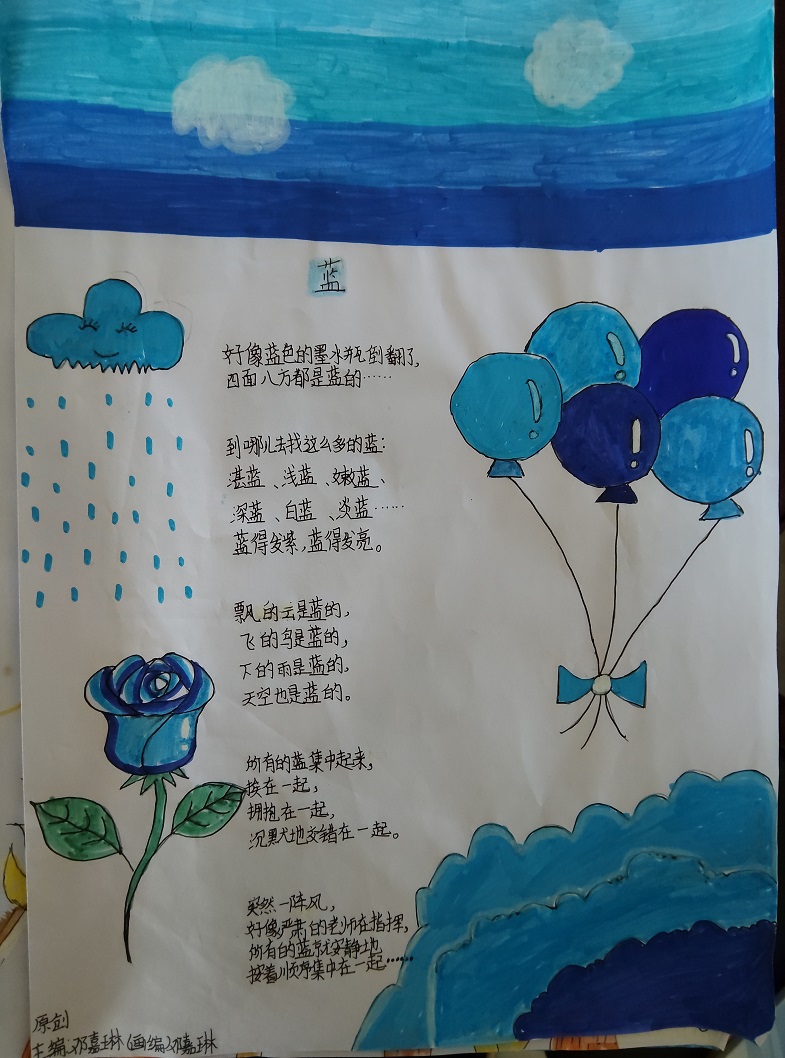 蓝
好像蓝色的墨水瓶倒翻了,
四面八方都是蓝的……
到哪儿去找这么多的蓝:
湛蓝、浅蓝、嫩蓝、
深蓝、白蓝、淡蓝……
蓝得发紫,蓝得发亮。
飘的云是蓝的,
飞的鸟是蓝的,
下的雨是蓝的,
天空也是蓝的。
所有的蓝集中起来,
挨在一起,
拥抱在一起,
沉默地交错在一起。
突然一阵风,
好像严肃的老师在指挥,
所有的蓝就安静地
按着顺序集中在一起……
原创
主编:邓嘉琳(画编)邓嘉琳